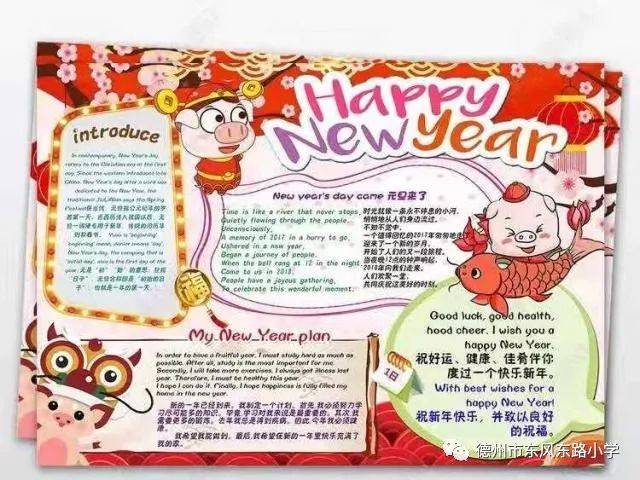 Happy
New Year
introduce
In contemporary, New Year's day
variety to the Christian era of the first
day. Since the western introduced into
China, New Year's day after a word was
dedicated to the New Year, the
New year's day came 元旦来了
Time is like a river that never stops,
Quietly flowing through the people.
Unconsciously,
A memory of 2017 in a hurry to go,
Ushered in a new year,
Began a journey of people.
When the bell rang at 12 in the night,
Come to us in 2018.
People have a joyous gathering,
To celebrate this wonderful moment.
时光就像一条永不休息的小河,
悄悄地从人们身边流过。
不知不觉中,
一个值得回忆的2017年匆匆地走了,
迎来了一个新的岁月,
开始了人们的又一段旅程。
当夜晚12点的钟声响起,
2018年向我们走来。
人们欢聚一堂,
共同庆祝这美好的时刻。
福
My New Year plan
In order to have a fruitful year, I must study hard as much as
possible. After all, study is the most important for me.
Secondly, I will take more exercises. I always get illness last
year. Therefore, I must be healthy this year.
I hope I can do it. Finally, I hope happiness is fully filled my
home in the new year.
新的一年已经到来,我制定一个计划。首先,我必须努力学
习尽可能多的知识。毕竟,学习对我来说是最重要的。其次,我
需要更多的锻炼。去年我总是得到疾病。因此,今年我必须健
康。
我希望我能做到。最后,我希望在新的一年里快乐充满了
我的家。
1日
Good luck, good health,
hood cheer. I wish you a
happy New Year.
祝好运、健康、佳肴伴你
度过一个快乐新年。
With best wishes for a
happy New Year!
祝新年快乐,并致以良好
的祝福。
德州市东风东路小学